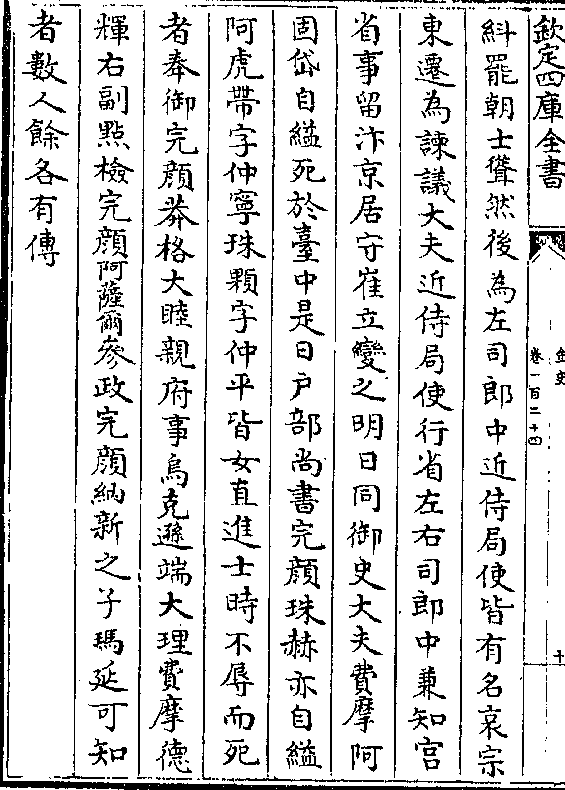 欽定四庫全書
金史
卷一百二十四
十
糾罷朝士聳然後為左司郎中近侍局使皆有名哀宗
東遷為諫議大夫近侍局使行省左右司郎中兼知宫
省事留汴京居守崔立變之明日同御史大夫費摩阿
固岱自縊死於臺中是日戸部尚書完顔珠赫亦自縊
阿虎帶字仲寧珠顆字仲平皆女直進士時不辱而死
者奉御完顔莽格大睦親府事烏克遜端大理費摩德
輝右副㸃檢完顔阿薩爾參政完顔納新之子瑪延可知
者數人餘各有傳